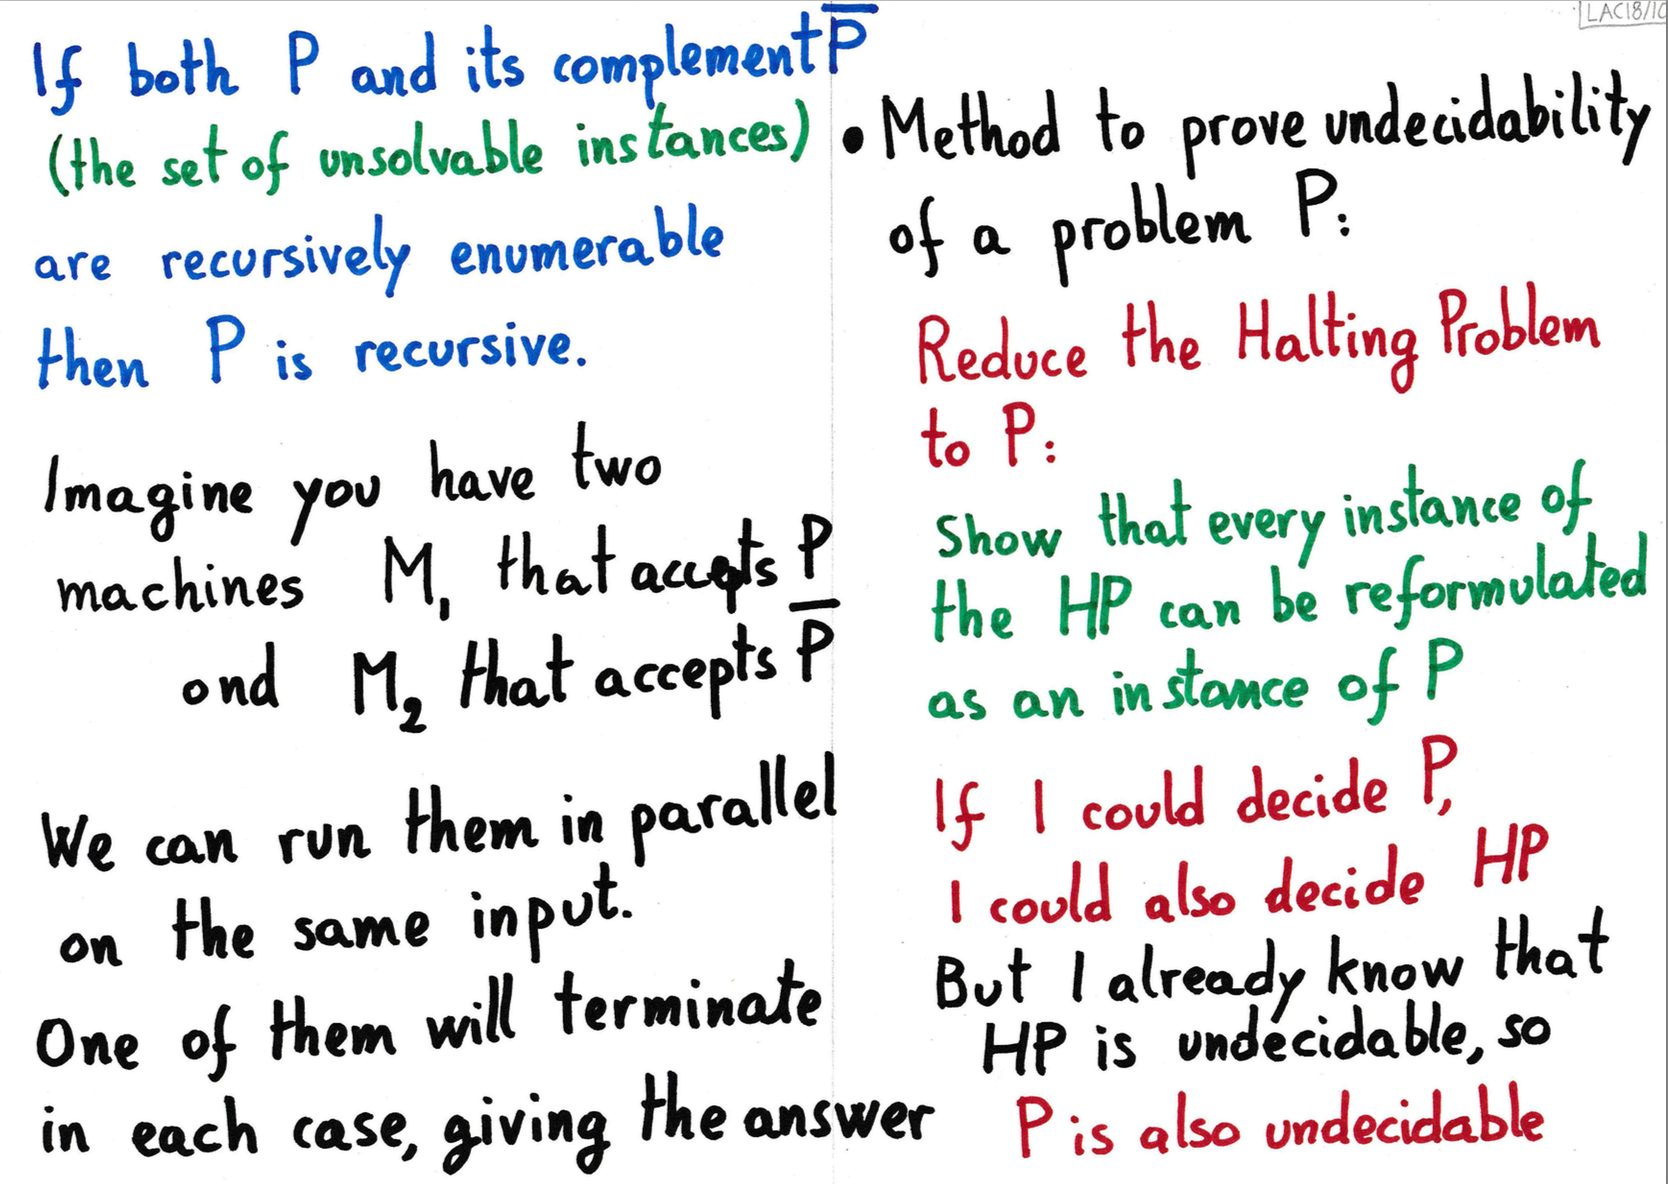 If both P and its complement P̅
(the set of unsolvable instances)
are recursively enumerable
then P is recursive.
Imagine you have two
machines M₁ that accepts P
ond M₂ that accepts P̅
We can run them in parallel
on the same input.
One of them will terminate
in each case, giving the answer
LAC18/10
• Method to prove undecidability
of a problem P:
Reduce the Halting Problem
to P:
Show that every instance of
the HP can be reformulated
as an instance of P
If I could decide P,
I could also decide HP
But I already know that
HP is undecidable, so
P is also undecidable